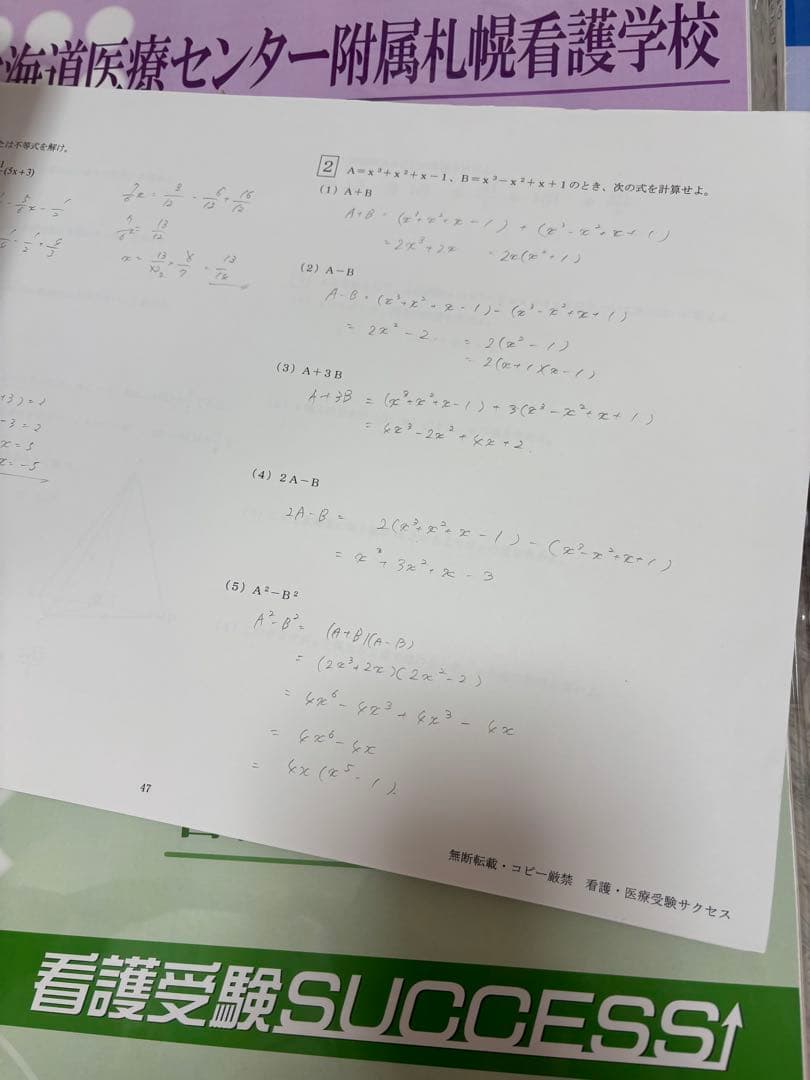 海道医療センター附属札幌看護学校
たは不等式を解け。
(5x+3)
7/6x = 8/12 - 6/12 + 16/12
= 13/12
+3)=2
-3=2
x=5
x=-5
2 A=x³+x²+x-1、B=x³-x²+x+1のとき、次の式を計算せよ。
(1) A+B
A+B = (x³+x²+x-1) + (x³-x²+x+1)
= 2x³+2x = 2x(x²+1)
(2) A-B
A-B = (x³+x²+x-1) - (x³-x²+x+1)
= 2x²-2 = 2(x²-1)
= 2(x+1)(x-1)
(3) A+3B
A+3B = (x³+x²+x-1) + 3(x³-x²+x+1)
= 4x³-2x²+4x+2
(4) 2A-B
2A-B = 2(x³+x²+x-1) - (x³-x²+x+1)
= x³+3x²+x-3
(5) A²-B²
A²-B² = (A+B)(A-B)
= (2x³+2x)(2x²-2)
= 4x⁶-4x³+4x³-4x
= 4x⁶-4x
= 4x(x⁵-1)
47
無断転載・コピー厳禁 看護・医療受験サクセス
看護受験SUCCESS